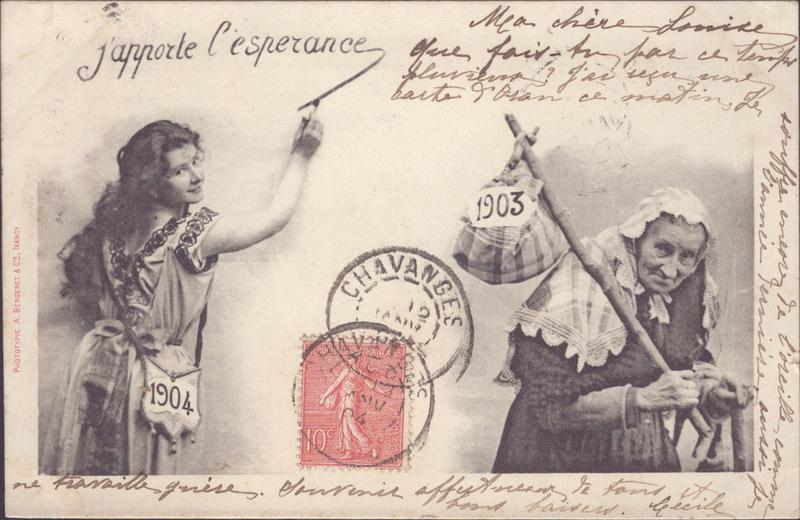 j'apporte l'esperance
Ma chère Louise
que fais-tu par ce temps
pluvieux ? j'ai reçu une
carte d'Oran ce matin, Je
souffre encore de l'oreille comme
l'année dernière, aussi je
ne travaille guère. Souvenir affectueux de tous et
bons baisers. Cécile
1903
1904
CHAVANGES
12
JANV
10c
PHOTOTYPIE A. BERGERET & Cie, NANCY